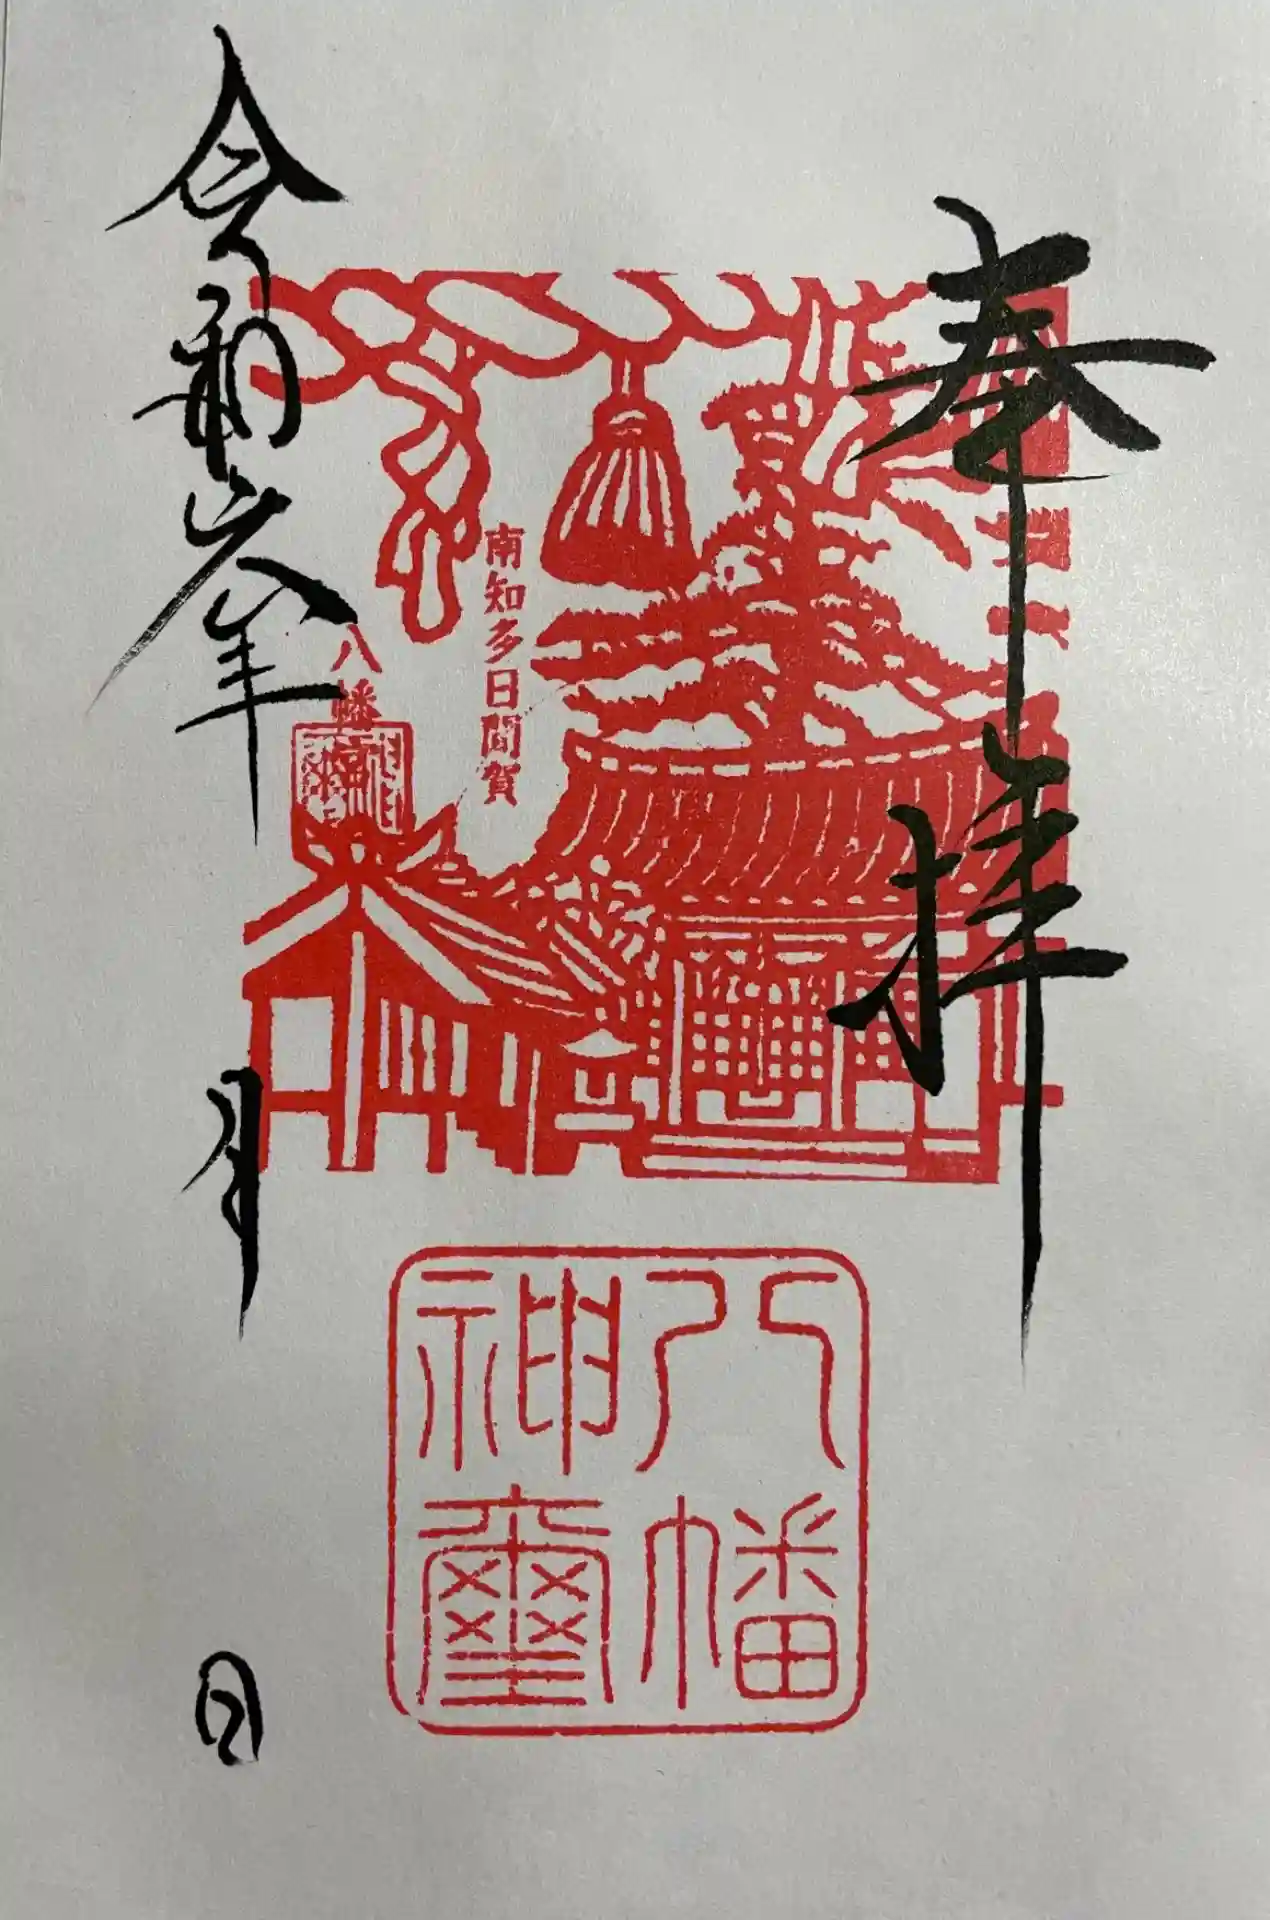 奉拝
南知多日間賀
八幡
八幡
神璽
令和六年
月
日